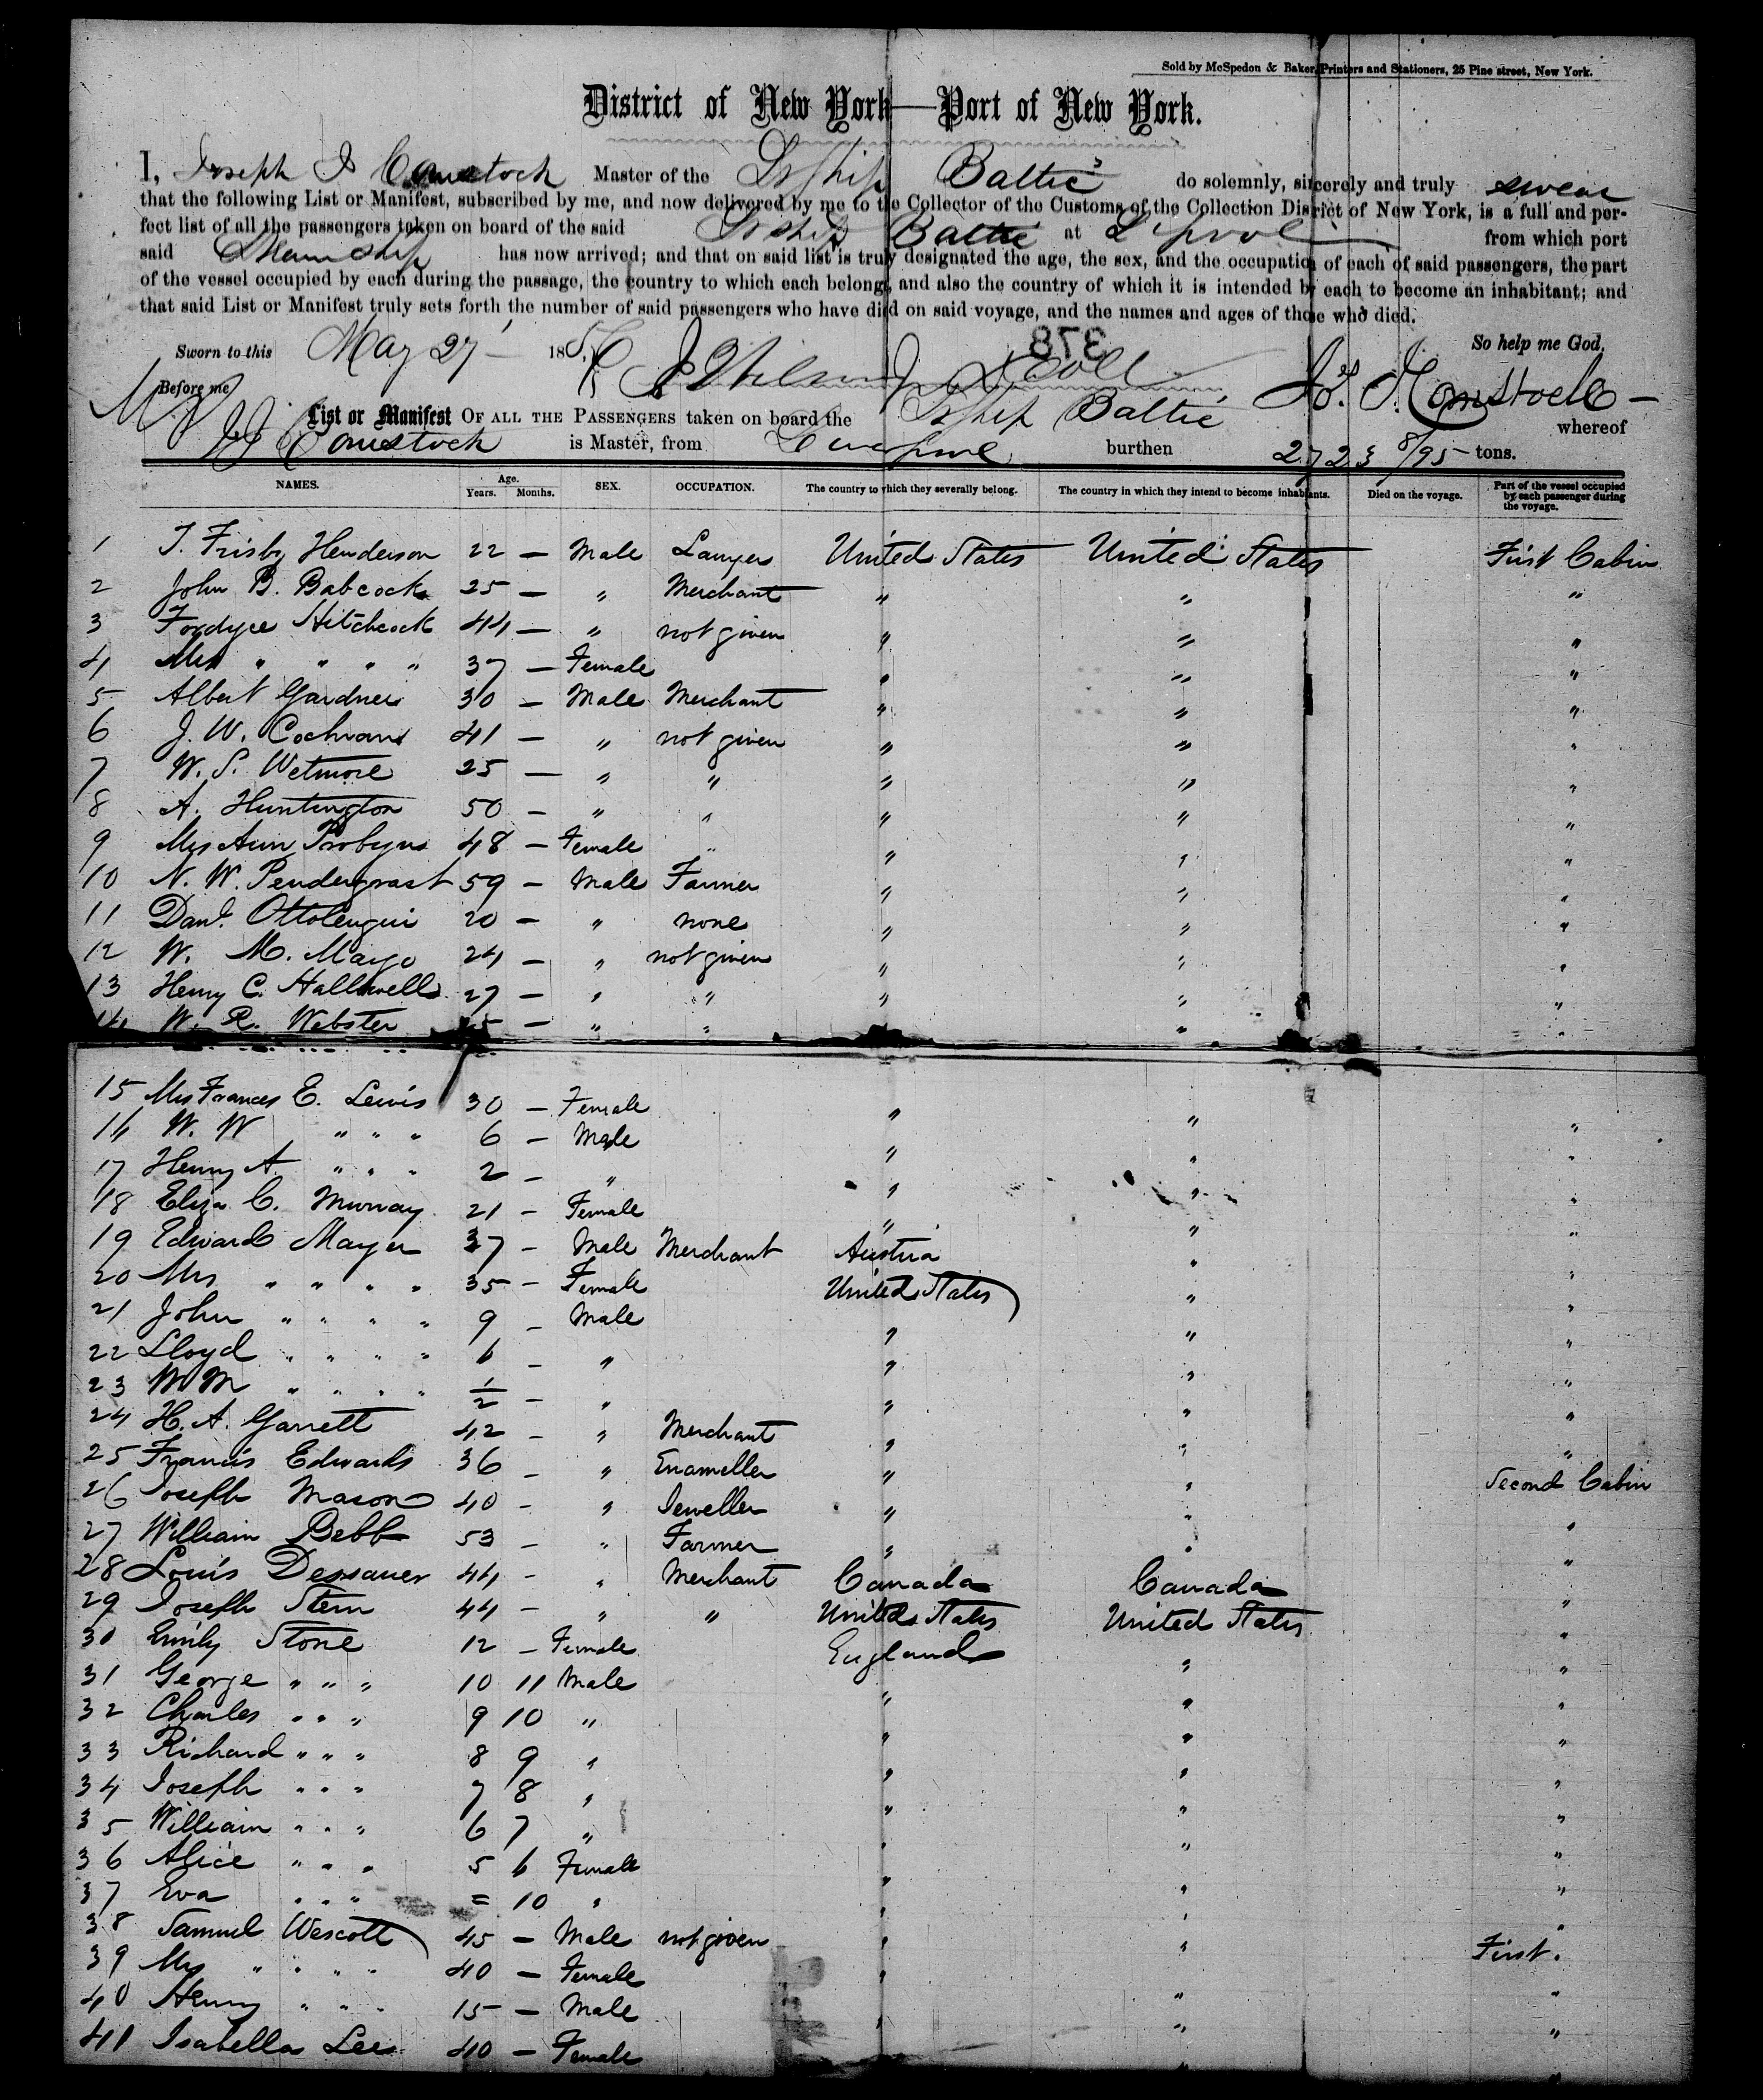 Sold by McSpedon & Baker, Printers and Stationers, 25 Pine street, New York.
District of New York—Port of New York.
I, Joseph J Comstock Master of the Str Ship Baltic do solemnly, sincerely and truly swear
that the following List or Manifest, subscribed by me, and now delivered by me to the Collector of the Customs of the Collection District of New York, is a full and per-
fect list of all the passengers taken on board of the said Str Ship Baltic at L'pool from which port
said Steam Ship has now arrived; and that on said list is truly designated the age, the sex, and the occupation of each of said passengers, the part
of the vessel occupied by each during the passage, the country to which each belongs, and also the country of which it is intended by each to become an inhabitant; and
that said List or Manifest truly sets forth the number of said passengers who have died on said voyage, and the names and ages of those who died.
378
Sworn to this May 27 185 So help me God,
Before me Jos. J. Comstock
List or Manifest OF ALL THE PASSENGERS taken on board the Str Ship Baltic whereof
J J Comstock is Master, from Liverpool burthen 2723 8/95 tons.
NAMES. Age. Years. Months. SEX. OCCUPATION. The country to which they severally belong. The country in which they intend to become inhabitants. Died on the voyage. Part of the vessel occupied by each passenger during the voyage.
1 T. Frisby Henderson 22 — Male Lawyer United States United States First Cabin
2 John B. Babcock 25 — " Merchant " " "
3 Fordyce Hitchcock 44 — " not given " " "
4 Mrs " " " " 37 — Female " " "
5 Albert Gardner 30 — Male Merchant " " "
6 J. W. Cochran 41 — " not given " " "
7 W. S. Wetmore 25 — " " " " "
8 A. Huntington 50 — " " " " "
9 Mrs Ann Probyn 48 — Female " " " "
10 N. W. Pendergrast 59 — Male Farmer " " "
11 Danl. Ottolengui 20 — " none " " "
12 W. M. Mayo 24 — " not given " " "
13 Henry C. Hallowell 27 — " " " " "
14 W. R. Webster — " " " "
15 Mrs Frances E. Lewis 30 — Female " " "
16 W. W " " " 6 — Male " " "
17 Henry A " " " 2 — " " " "
18 Eliza C. Murray 21 — Female " " "
19 Edward Mayer 37 — Male Merchant Austria " "
20 Mrs " " " " 35 — Female United States " "
21 John " " " " 9 — Male " " "
22 Lloyd " " " " 6 — " " " "
23 Wm " " " " 1/2 — " " " "
24 H. A. Garrett 42 — " Merchant " " "
25 Francis Edwards 36 — " Enameller " " Second Cabin
26 Joseph Mason 40 — " Jeweller " " "
27 William Bebb 53 — " Farmer " " "
28 Louis Dessauer 44 — " Merchant Canada Canada "
29 Joseph Stern 44 — " " United States United States "
30 Emily Stone 12 — Female England " "
31 George " " " 10 11 Male " " "
32 Charles " " " 9 10 " " " "
33 Richard " " " 8 9 " " " "
34 Joseph " " " 7 8 " " " "
35 William " " " 6 7 " " " "
36 Alice " " " 5 6 Female " " "
37 Eva " " " = 10 " " " "
38 Samuel Wescott 45 — Male not given " " First.
39 Mrs " " " " 40 — Female " " "
40 Henry " " " 15 — Male " " "
41 Isabella Lee 40 — Female " "